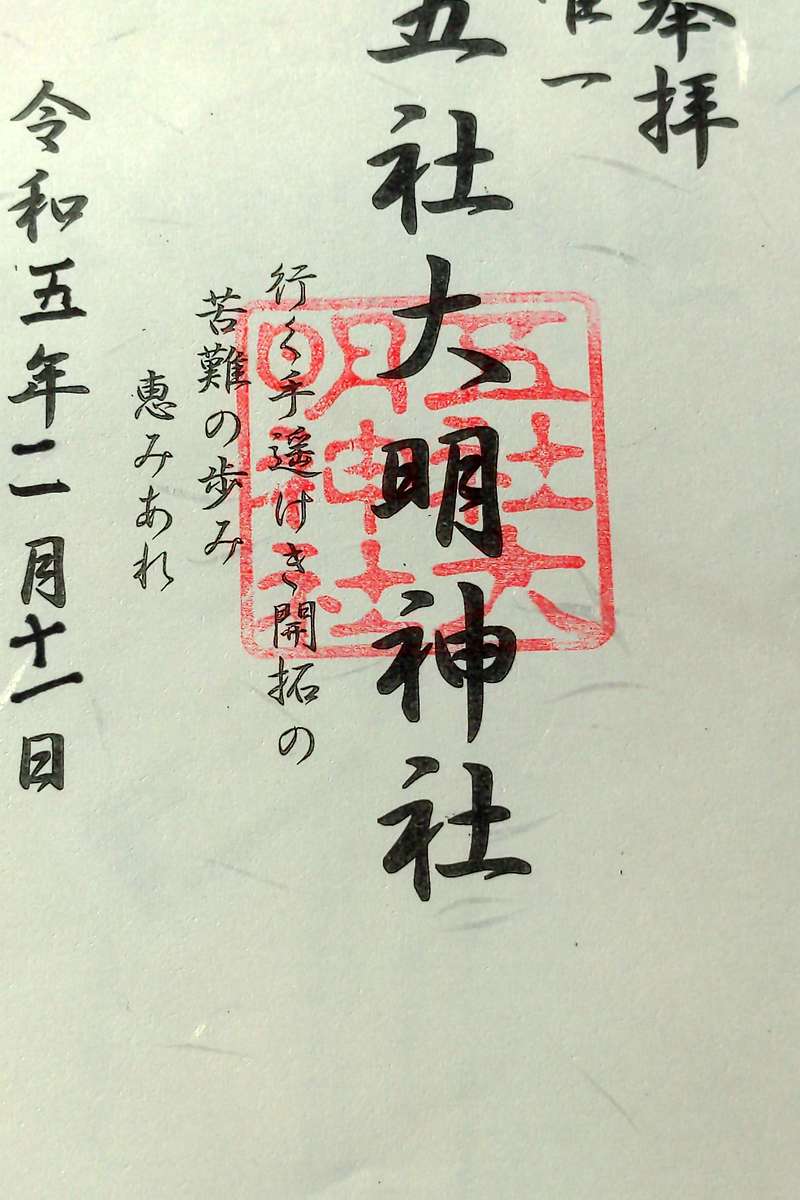 奉拝
一
五社大明神社
五社大
明神社
行く手遥けき開拓の
苦難の歩み
恵みあれ
令和五年二月十一日